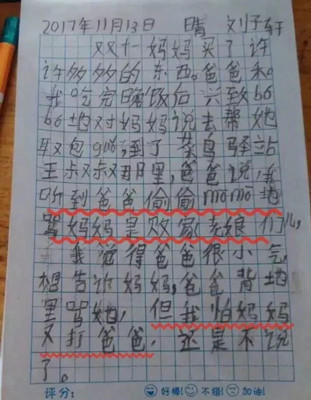 2017年11月13日 晴 刘子轩
双十一妈妈买了许
许多多的东西。爸爸和
我吃完晚饭后兴致bó
bó地对妈妈说去帮她
取包guǒ到了菜鸟驿站
王叔叔那里，爸爸说，我
听到爸爸偷偷mōmō地
骂妈妈是败家娘们儿，
我觉得爸爸很小气，
想告诉妈妈，爸爸背地
里骂她，但我怕妈妈
又打爸爸，还是不说
了。
评分： 好棒! 不错! 加油!